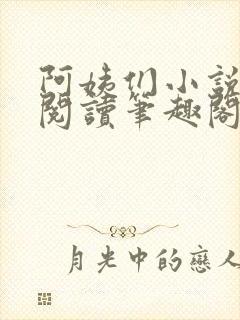 阿姨们小說
閱讀筆趣閣
月光中的戀人